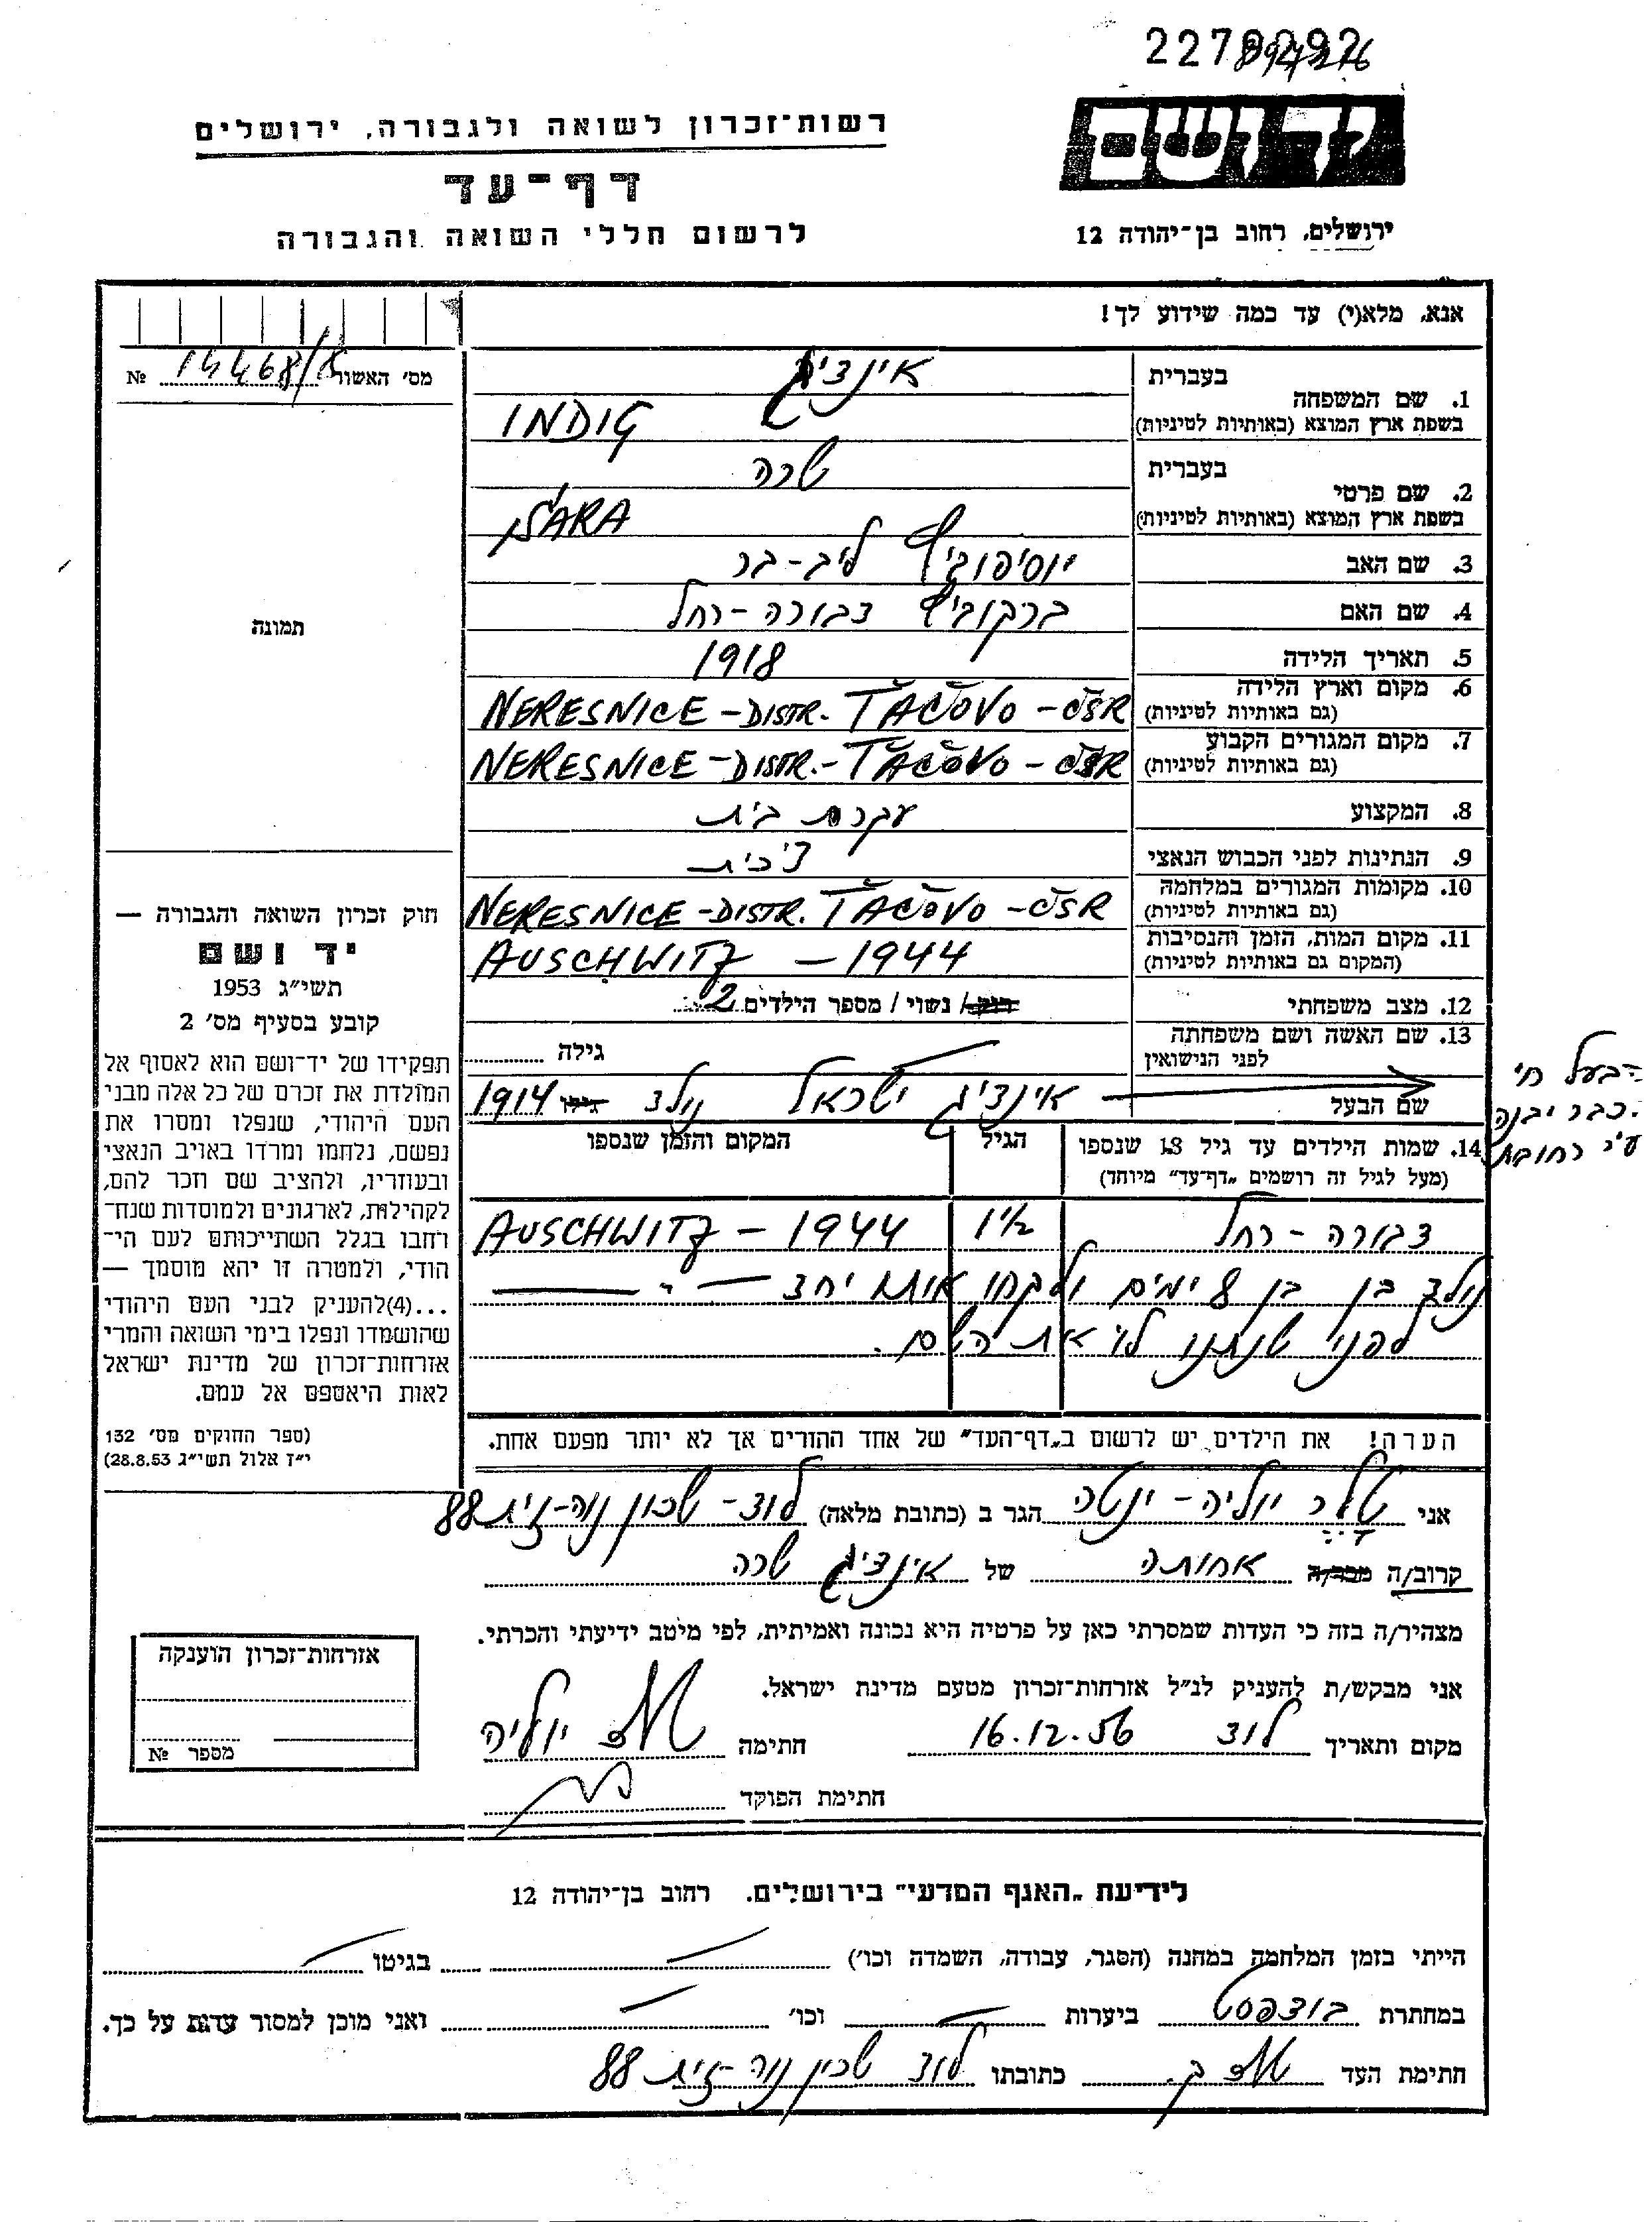 2279292
יד ושם
רשות־זכרון לשואה ולגבורה, ירושלים
דף־עד
לרשום חללי השואה והגבורה
ירושלים, רחוב בן־יהודה 12
אנא, מלא(י) עד כמה שידוע לך!
מס' האשור № 15468/8
1. שם המשפחה
בעברית אינדיג
בשפת ארץ המוצא (באותיות לטיניות) INDIG
2. שם פרטי
בעברית שרה
בשפת ארץ המוצא (באותיות לטיניות) SÁRA
3. שם האב יוסיפוביץ ליב-בר
4. שם האם ברקוביץ דבורה-רחל
5. תאריך הלידה 1918
6. מקום וארץ הלידה
(גם באותיות לטיניות) NERESNICE - DISTR. TÁČOVO - ČSR
7. מקום המגורים הקבוע
(גם באותיות לטיניות) NERESNICE - DISTR. - TÁČOVO - ČSR
8. המקצוע עקרת בית
9. הנתינות לפני הכבוש הנאצי צ'כית
10. מקומות המגורים במלחמה
(גם באותיות לטיניות) NERESNICE - DISTR. TÁČOVO - ČSR
11. מקום המות, הזמן והנסיבות
(המקום גם באותיות לטיניות) AUSCHWITZ - 1944
12. מצב משפחתי רווק / נשוי / מספר הילדים 2
13. שם האשה ושם משפחתה
לפני הנישואין גילה
שם הבעל אינדיג ישראל נולד גילו 1914
הבעל חי
כבר יבנה
ע"י רחובות
14. שמות הילדים עד גיל 18 שנספו
(מעל לגיל זה רושמים „דף־עד" מיוחד)
הגיל
המקום והזמן שנספו
דבורה - רחל 1½ AUSCHWITZ - 1944
נולד בן בן 8 ימים ולקחו אותו יחד - " -
לפני שנתנו לו את השם.
הערה! את הילדים יש לרשום ב„דף־העד" של אחד ההורים אך לא יותר מפעם אחת.
תמונה
חוק זכרון השואה והגבורה —
יד ושם
תשי״ג 1953
קובע בסעיף מס' 2
תפקידו של יד־ושם הוא לאסוף אל
המולדת את זכרם של כל אלה מבני
העם היהודי, שנפלו ומסרו את
נפשם, נלחמו ומרדו באויב הנאצי
ובעוזריו, ולהציב שם וזכר להם,
לקהילות, לארגונים ולמוסדות שנח־
רחבו בגלל השתייכותם לעם הי־
הודי, ולמטרה זו יהא מוסמך —
...(4)להעניק לבני העם היהודי
שהושמדו ונפלו בימי השואה והמרי
אזרחות־זכרון של מדינת ישראל
לאות היאספם אל עמם.
(ספר החוקים מס' 132
י״ז אלול תשי״ג 28.8.53)
אני יוליה - ינטה הגר ב (כתובת מלאה) לוד - שכון נוה-זית 88
קרוב/ה מכר/ה אחותה של אינדיג שרה
מצהיר/ה בזה כי העדות שמסרתי כאן על פרטיה היא נכונה ואמיתית, לפי מיטב ידיעתי והכרתי.
אני מבקש/ת להעניק לנ״ל אזרחות־זכרון מטעם מדינת ישראל.
מקום ותאריך לוד 16.12.56 חתימה יוליה
חתימת הפוקד
אזרחות־זכרון הוענקה
מספר №
לידיעת „האגף המדעי" בירושלים. רחוב בן־יהודה 12
הייתי בזמן המלחמה במחנה (הסגר, עבודה, השמדה וכו') בגיטו
במחתרת בודפסט ביערות וכו' ואני מוכן למסור עדות על כך.
חתימת העד כתובתו לוד שכון נוה-זית 88